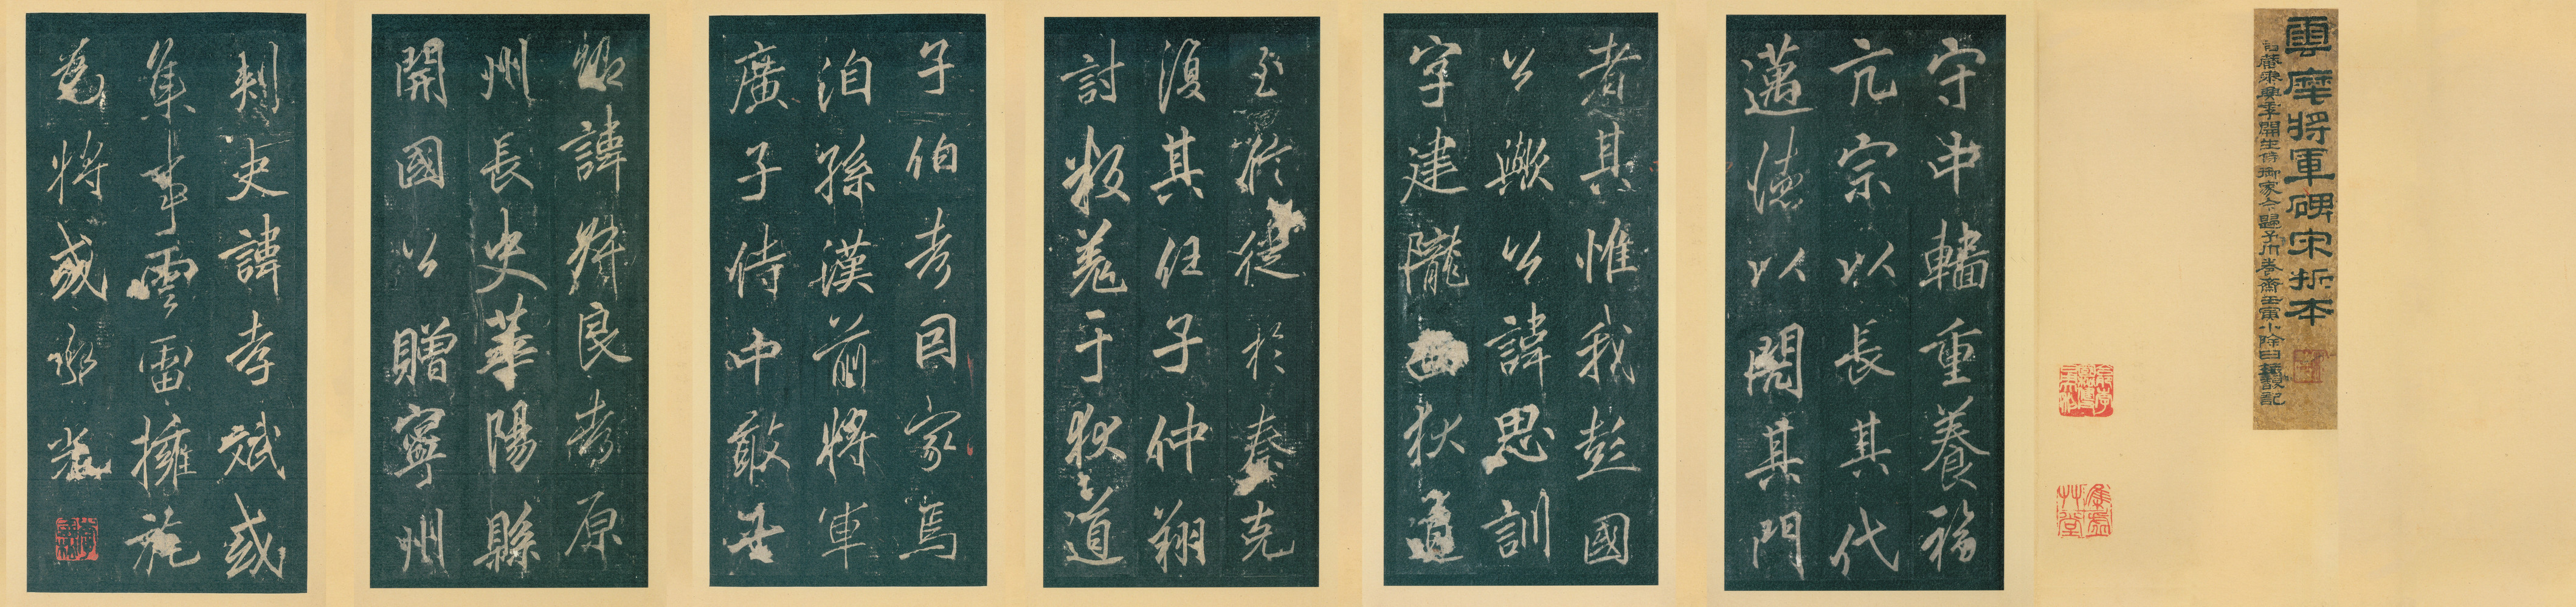 雲麾將軍碑宋拓本
守中轖重養福
亢宗以長其代
邁德以闊其門
者其惟我彭國
公歟公諱思訓
字建隴西狄道
至於徙於秦克
復其任子仲翔
討叛羌于狄道
子伯考因家焉
洎孫漢前將軍
廣子侍中敢世
卿諱 良考原
州長史華陽縣
開國公贈寧州
刺史諱孝斌或
集事雲雷擁旄
為將或承光
集虛草堂